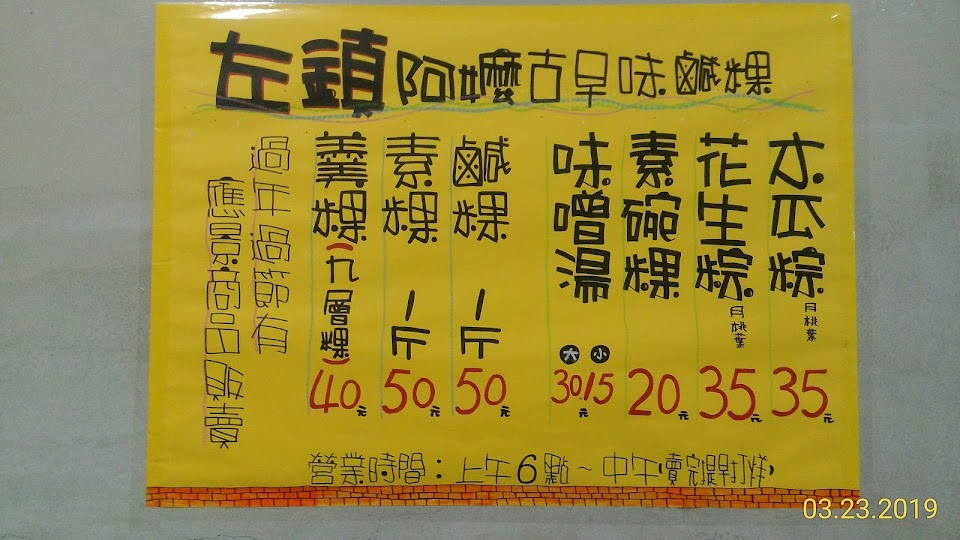 左鎮阿嬤古早味鹹粿
木瓜粽月桃葉35元
花生粽月桃葉35元
素碗粿20元
味噌湯大30小15元
鹹粿一斤50元
素粿一斤50元
羹粿(九層粿)40元
過年過節有
應景商品販賣
營業時間：上午6點~中午(賣完提早打烊)
03.23.2019